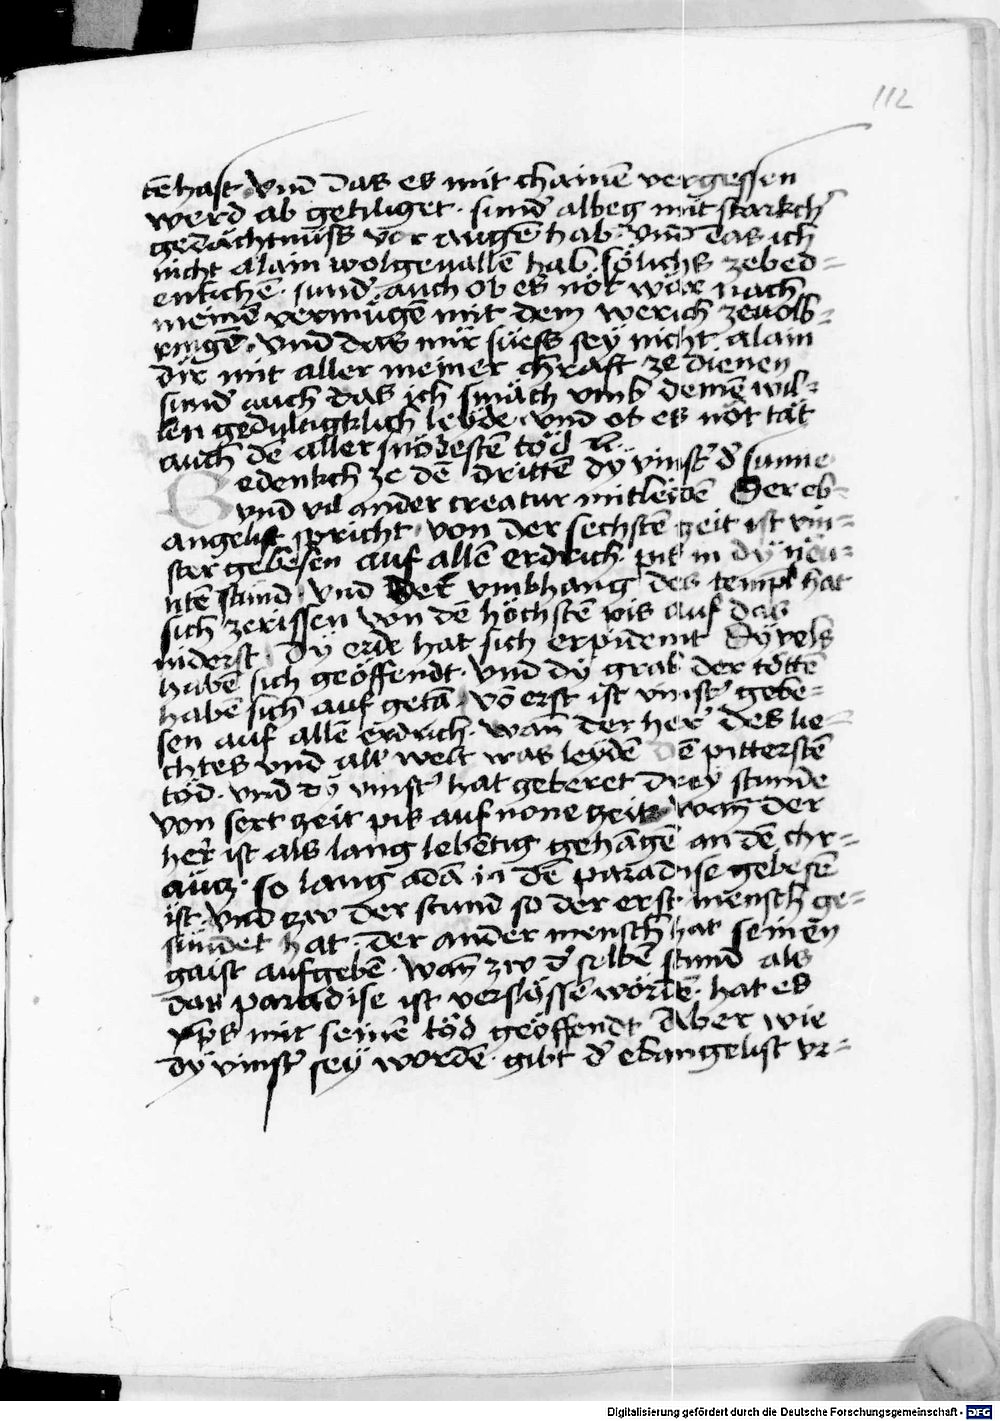 112
tē hast · vnd das es mit chainē vergessen
werd ab getiliget · sund̄ albeg mit starkch̄
gedächtnüss vor augē hab · vnd das ich
nicht alain wolgeuallē hab sölichs zebed=
enkchē · sund̄ auch ob es nöt wär nach
meinē vermügē mit dem werich zeuolb=
ringē · vnd das mir süess sey nicht alain
dir mit aller meiner chraft ze dienen
sund̄ auch das ich smäch vmb deinē wil=
len gedultigklich leyde · vnd ob es nöt tät
auch dē aller snödestē töd
Gedenkch ze dē drittē dy vinst̄ d̄ sunne
vnd vil ander creatur mitleydē Der eb=
angelist spricht · von der sechstē zeit ist vin=
ster gebesen auf allē erdrich pis in dy neü=
ntē stund · vnd der vmbhang des templ hat
sich zerissen von dē höchstē pis auf das
niderst · Dy erde hat sich erpidemt Dy vels
habē sich geöffendt · vnd dy grab der tottē
habē sich auf getā · vō erst ist vinst̄ gebe=
sen auf allē erdrich · wan̄ der her̄ des lie=
chtes vnd all̄ welt was leydē dē pitterstē
töd · vnd dy vinst̄ hat geberet drey stunde
von sext zeit pis auf none zeit · wan̄ der
her̄ ist als lang lebētig gehāgē an dē chr=
äucz · so lang adā in dē paradise gebesē
ist · vnd zw der stund so der erst mensch ge=
sündet hat · der ander mensch hat seinen
gaist aufgebē · wan̄ zw d̄ selbē stund als
das paradise ist verslossē wordē · hat es
xp̄s mit seinē töd geöffendt Aber wie
dy vinst̄ sey wordē · gibt d̄ ebangelist vr=
Digitalisierung gefördert durch die Deutsche Forschungsgemeinschaft - DFG